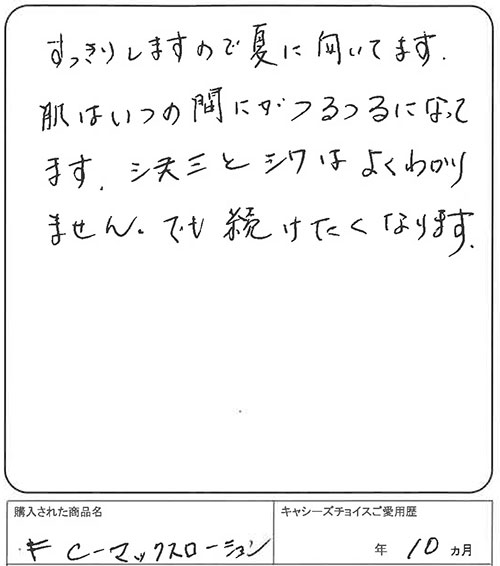 すっきりしますので夏に向いてます.
肌はいつの間にかつるつるになって
ます. シミとシワはよくわかり
ません。でも続けたくなります.
購入された商品名
キャシーズチョイスご愛用歴
C-マックスローション
年 10 ヵ月